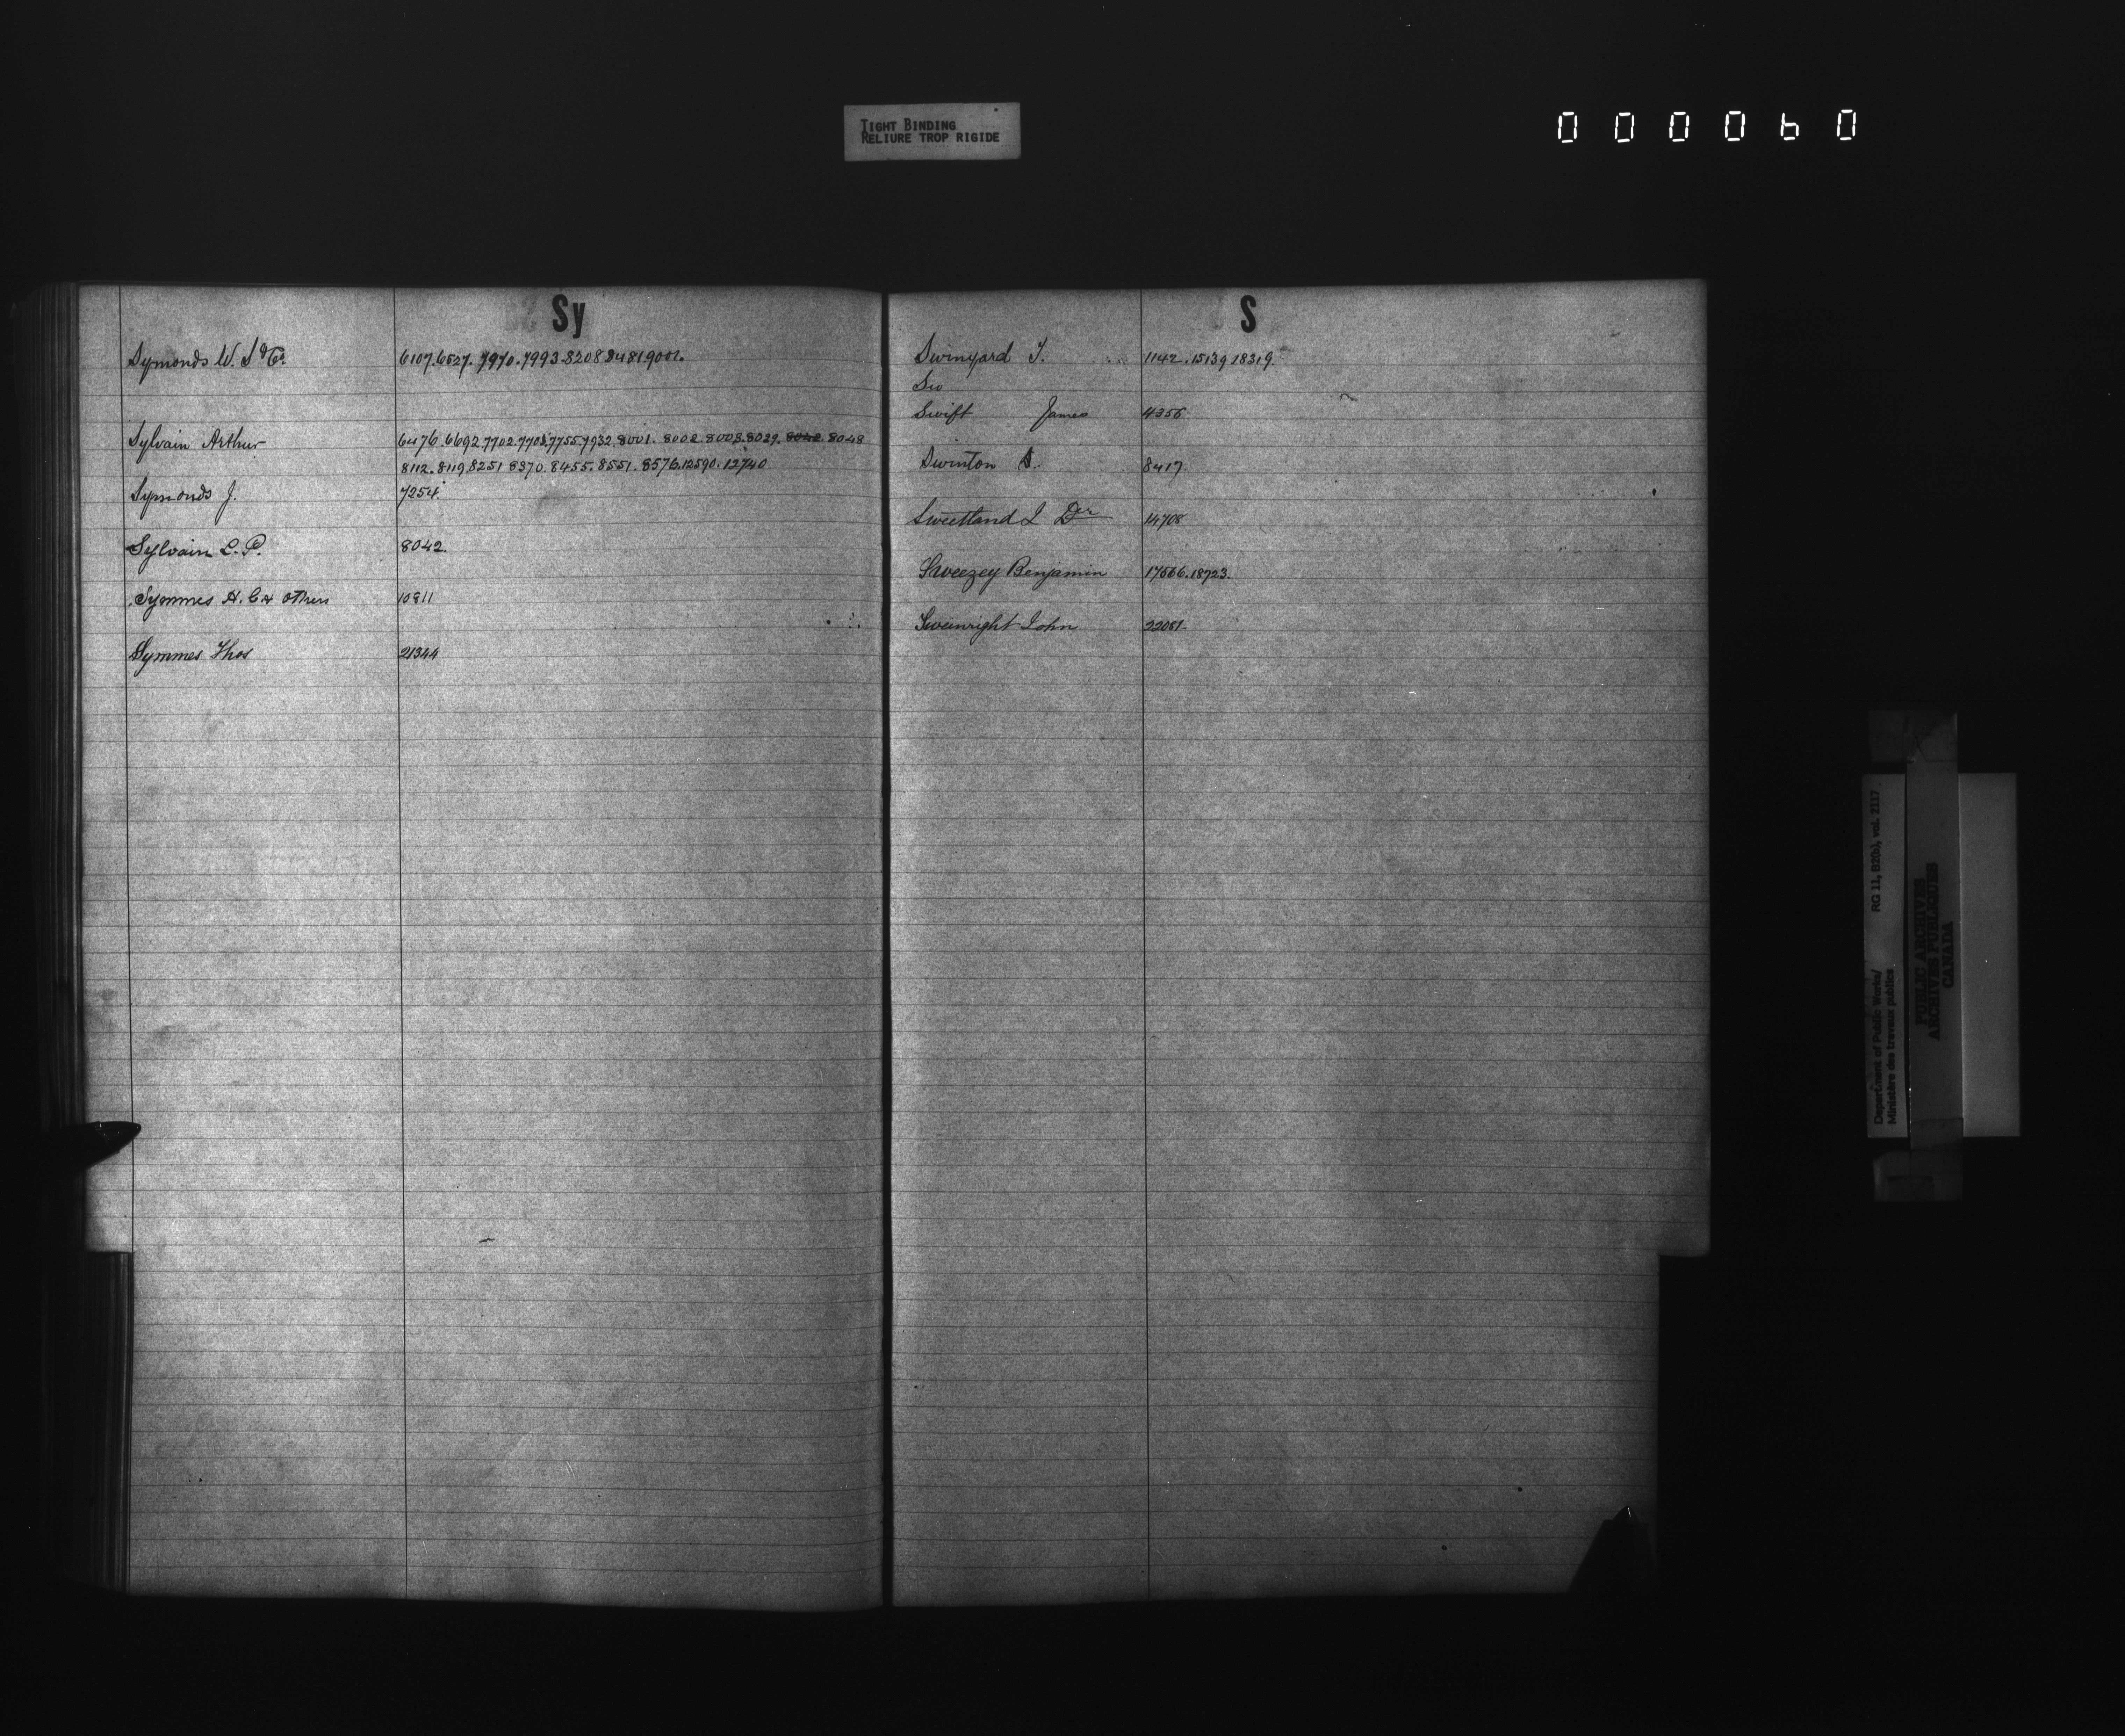 TIGHT BINDING
RELIURE TROP RIGIDE
000060
Sy
Symonds W. S & Co. 6107.6527.7970.7993.8208.8481.9001.
Sylvain Arthur 6476.6692.7702.7703.7755.7932.8001.8002.8003.8029.8042.8048
8112.8119.8251.8370.8455.8551.8576.12590.12740
Symonds J. 7254.
Sylvain L. P. 8042.
Symmes H. C & others 10811
Symmes Thos 21344
S
Swinyard T. 1142.15139.18319.
Sw
Swift James 4356
Swinton S. 8417.
Sweetland J Dr 14708
Sweezey Benjamin 17566.18723.
Swainright John 22051.
Department of Public Works/ RG 11, B2(b), vol. 2117
Ministère des travaux publics
PUBLIC ARCHIVES
ARCHIVES PUBLIQUES
CANADA